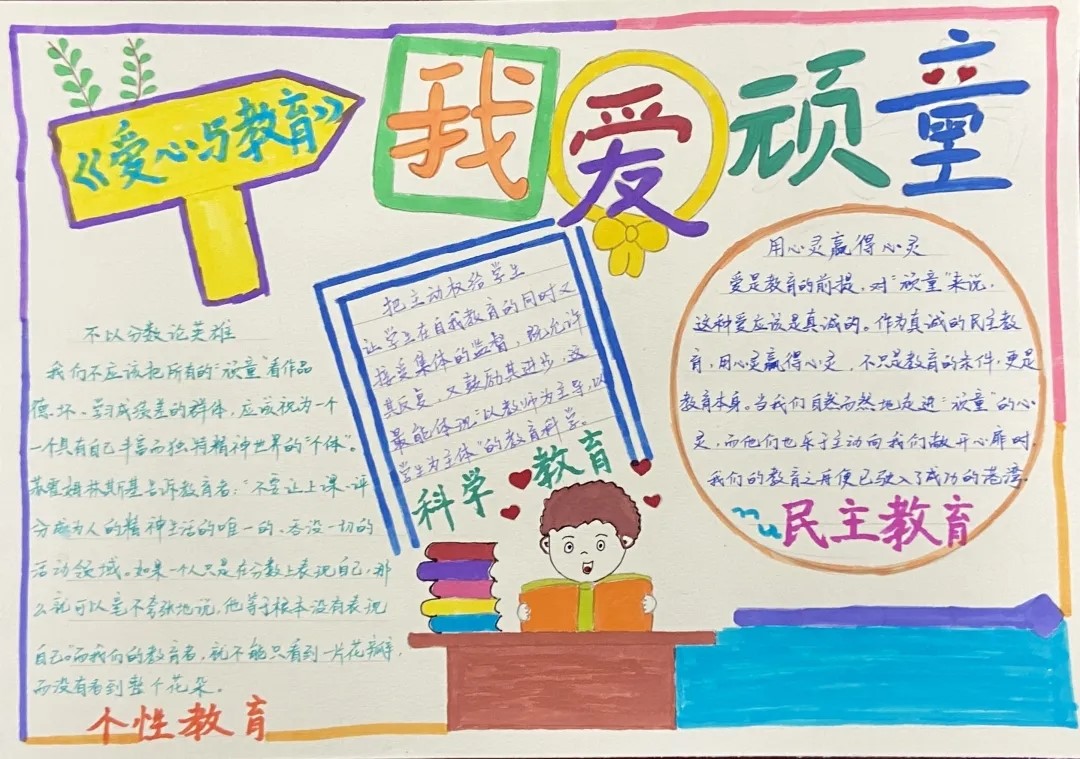 《爱心与教育》
我爱顽童
不以分数论英雄
我们不应该把所有的“顽童”看作品
德坏、学习成绩差的群体，应该视为一个
一个具有自己丰富而独特精神世界的“个体”。
苏霍姆林斯基告诉教育者：“不要让上课、评
分成为人的精神生活的唯一的、吞没一切的
活动领域。如果一个人只是在分数上表现自己，那
么就可以毫不夸张地说，他等于根本没有表现
自己。”而我们的教育者，就不能只看到一片花瓣，
而没有看到整个花朵。
个性教育
把主动权给学生
让学生在自我教育的同时又
接受集体的监督，既允许
其反复，又鼓励其进步，这
最能体现“以教师为主导，以
学生为主体”的教育科学。
科学教育
用心灵赢得心灵
爱是教育的前提，对“顽童”来说，
这种爱应该是真诚的。作为真诚的民主教
育，用心灵赢得心灵，不只是教育的条件，更是
教育本身。当我们自然而然地走进“顽童”的心
灵，而他们也乐于主动向我们敞开心扉时，
我们的教育之舟便已驶入了成功的港湾。
民主教育